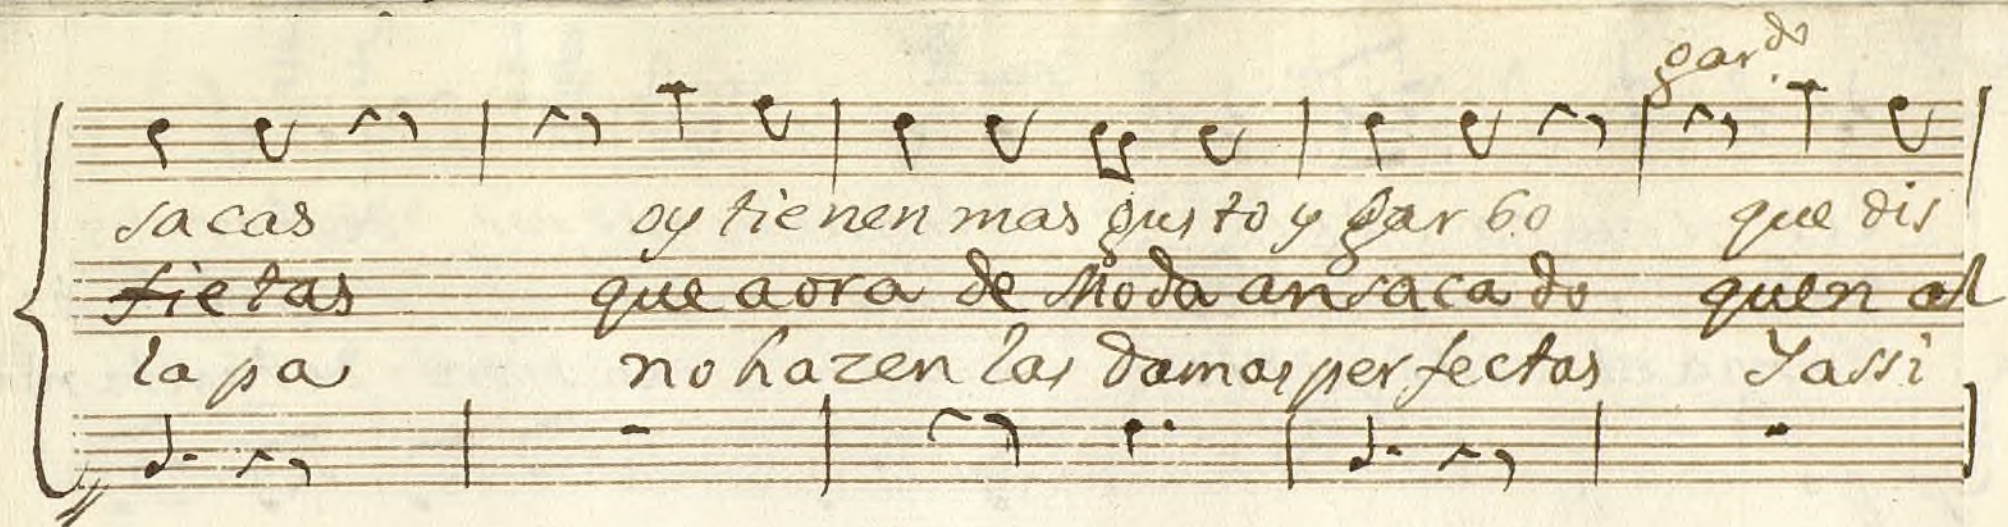 gar.do
sacas oy tienen mas gusto y garbo que dis
fietas que aora de Moda an sacado quen al
lapa no hazen las damas perfectas Y assi